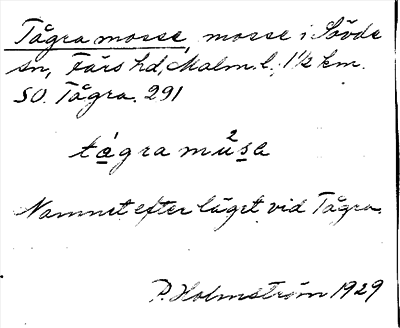 Tågra mosse, mosse i Sövde
sn, Färs hd, Malm. l., 1½ km.
SO. Tågra. 291
tágra mu²sa
Namnet efter läget vid Tågra.
P. Holmström 1929